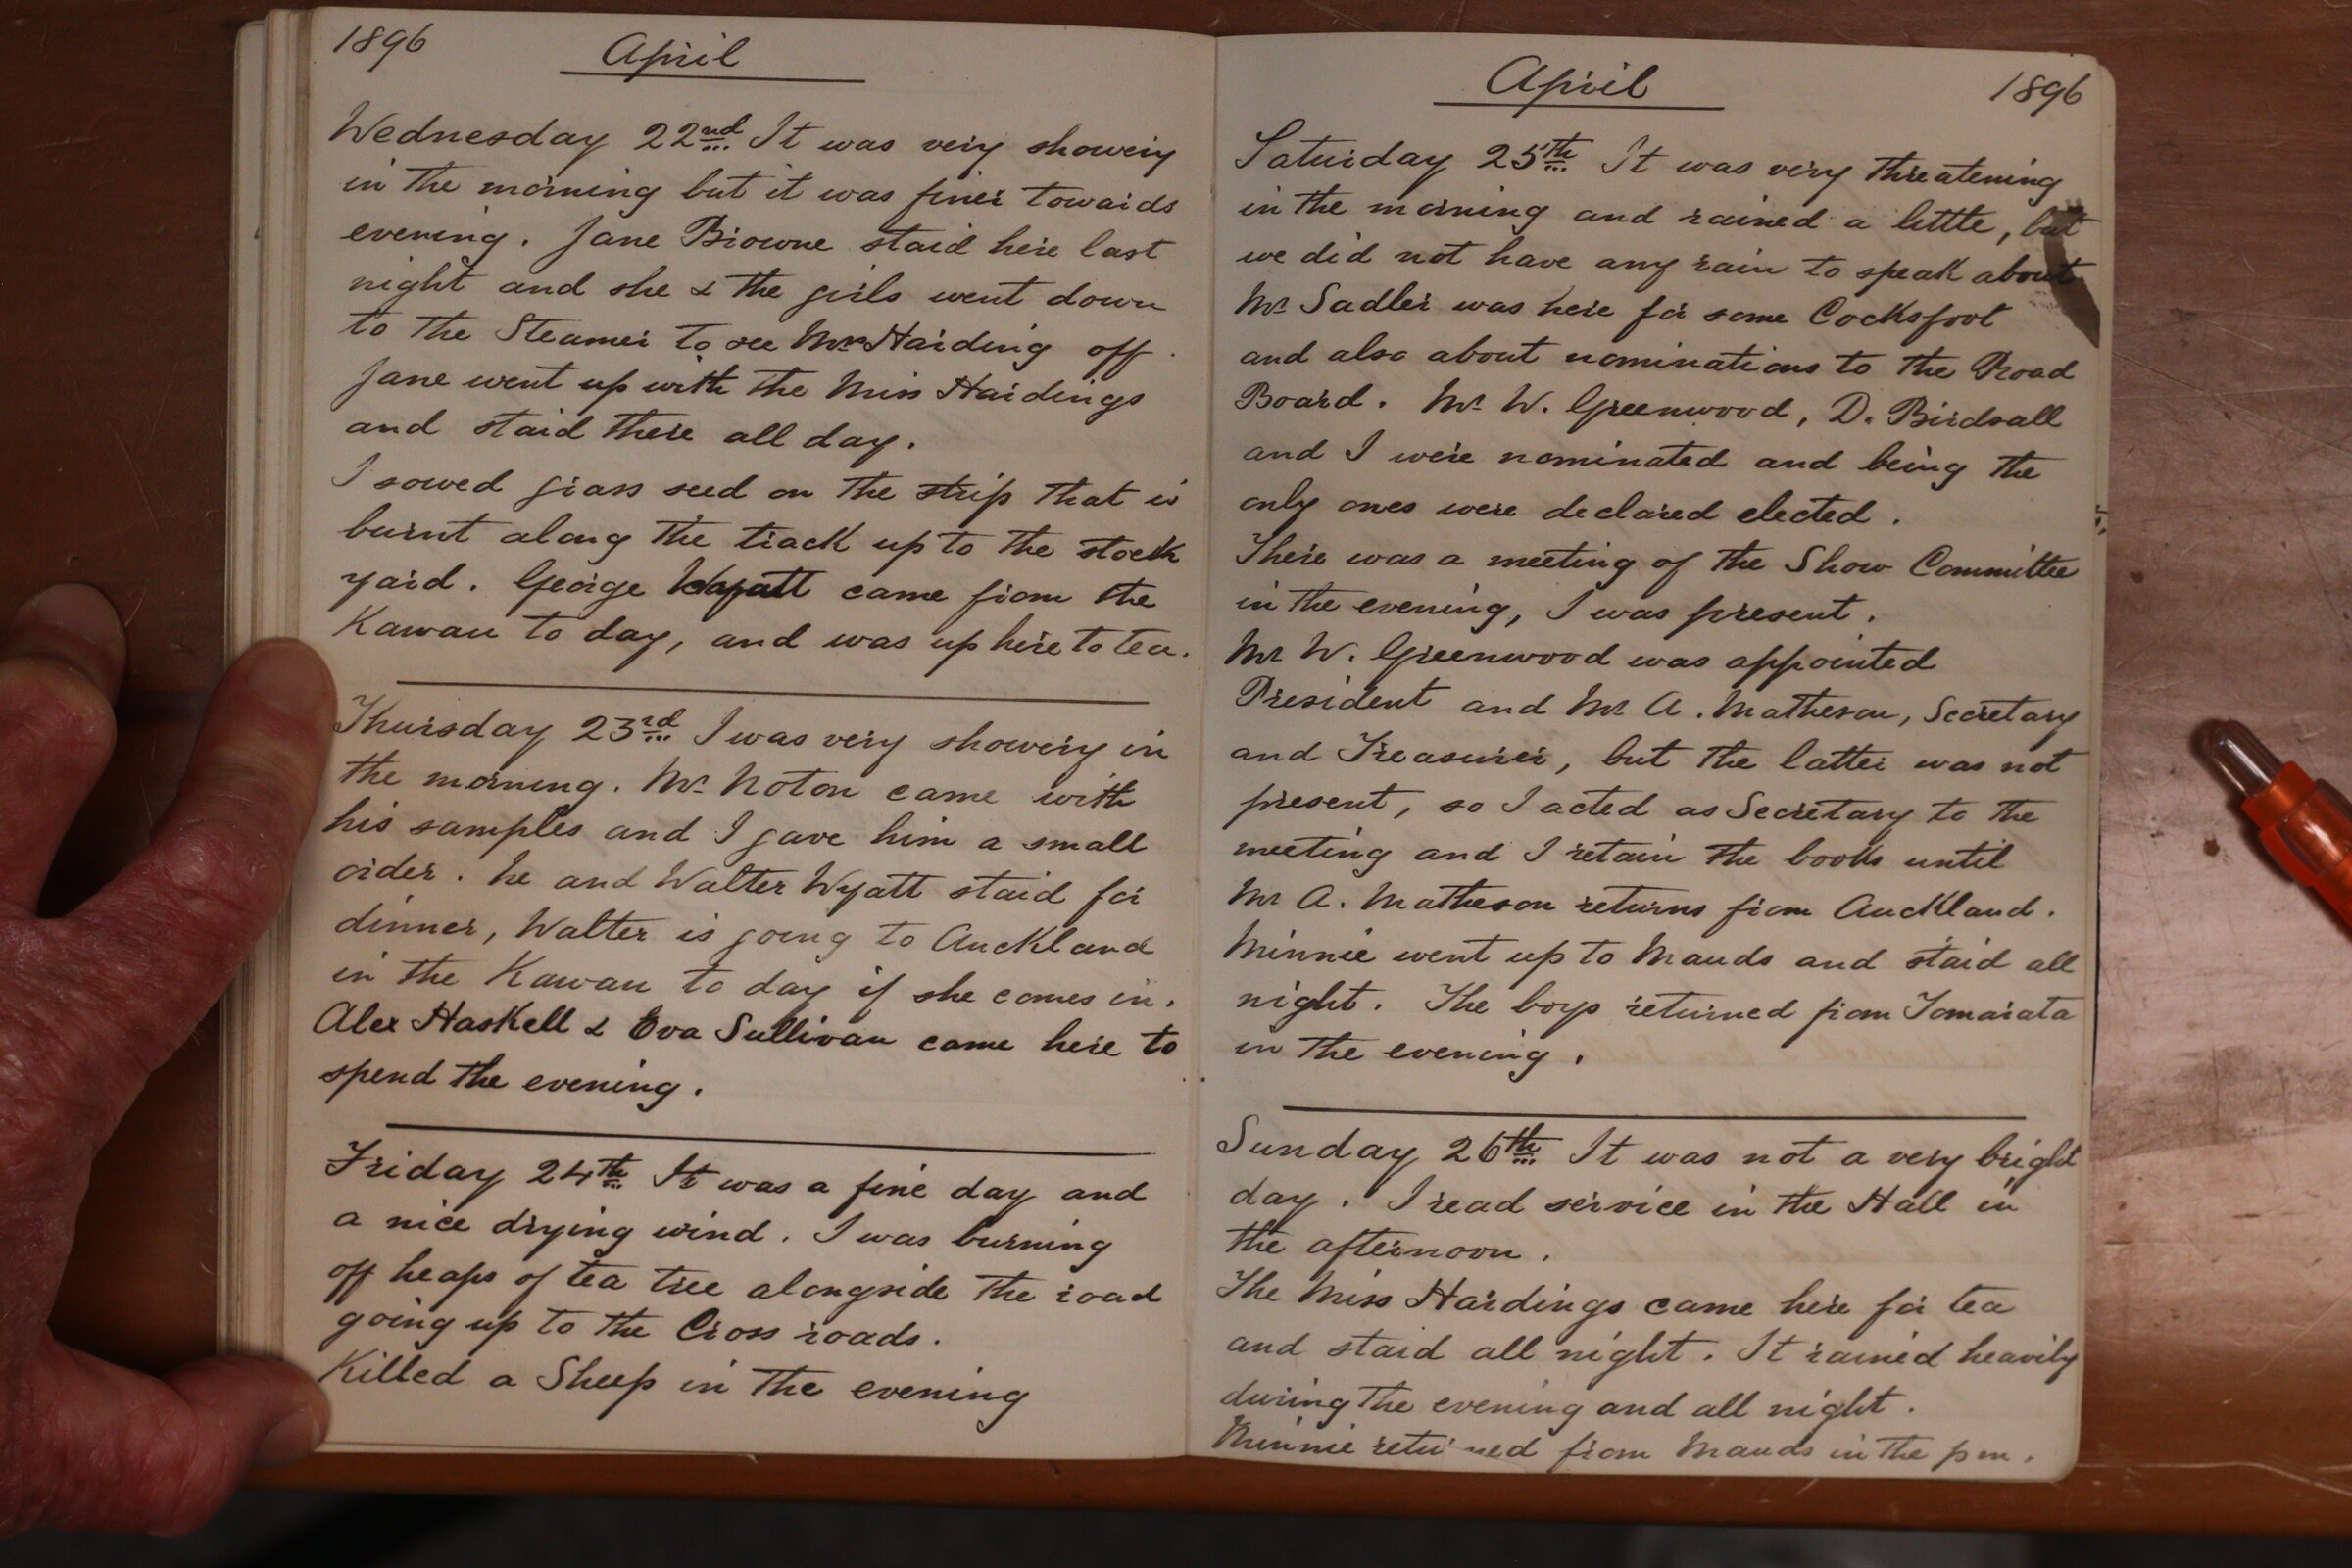 1896 April
Wednesday 22nd It was very showery
in the morning but it was finer towards
evening. Jane Browne staid here last
night and she & the girls went down
to the Steamer to see Mr Harding off.
Jane went up with the Miss Hardings
and staid there all day.
I sowed grass seed on the strip that is
burnt along the track up to the stock
yard. George Wyatt came from the
Kawau to day, and was up here to tea.
Thursday 23rd I was very showery in
the morning. Mr Noton came with
his samples and I gave him a small
order. he and Walter Wyatt staid for
dinner, Walter is going to Auckland
in the Kawau to day if she comes in.
Alex Haskell & Eva Sullivan came here to
spend the evening.
Friday 24th It was a fine day and
a nice drying wind. I was burning
off heaps of tea tree alongside the road
going up to the Cross roads.
Killed a Sheep in the evening
April 1896
Saturday 25th It was very threatening
in the morning and rained a little, but
we did not have any rain to speak about
Mr Sadler was here for some Cocksfoot
and also about nominations to the Road
Board. Mr W. Greenwood, D. Birdsall
and I were nominated and being the
only ones were declared elected.
There was a meeting of the Show Committee
in the evening, I was present.
Mr W. Greenwood was appointed
President and Mr A. Matheson, Secretary
and Treasurer, but the latter was not
present, so I acted as Secretary to the
meeting and I retain the books until
Mr A. Matheson returns from Auckland.
Minnie went up to Mauds and staid all
night. The boys returned from Tomarata
in the evening.
Sunday 26th It was not a very bright
day. I read service in the Hall in
the afternoon.
The Miss Hardings came here for tea
and staid all night. It rained heavily
during the evening and all night.
Minnie returned from Mauds in the pm.